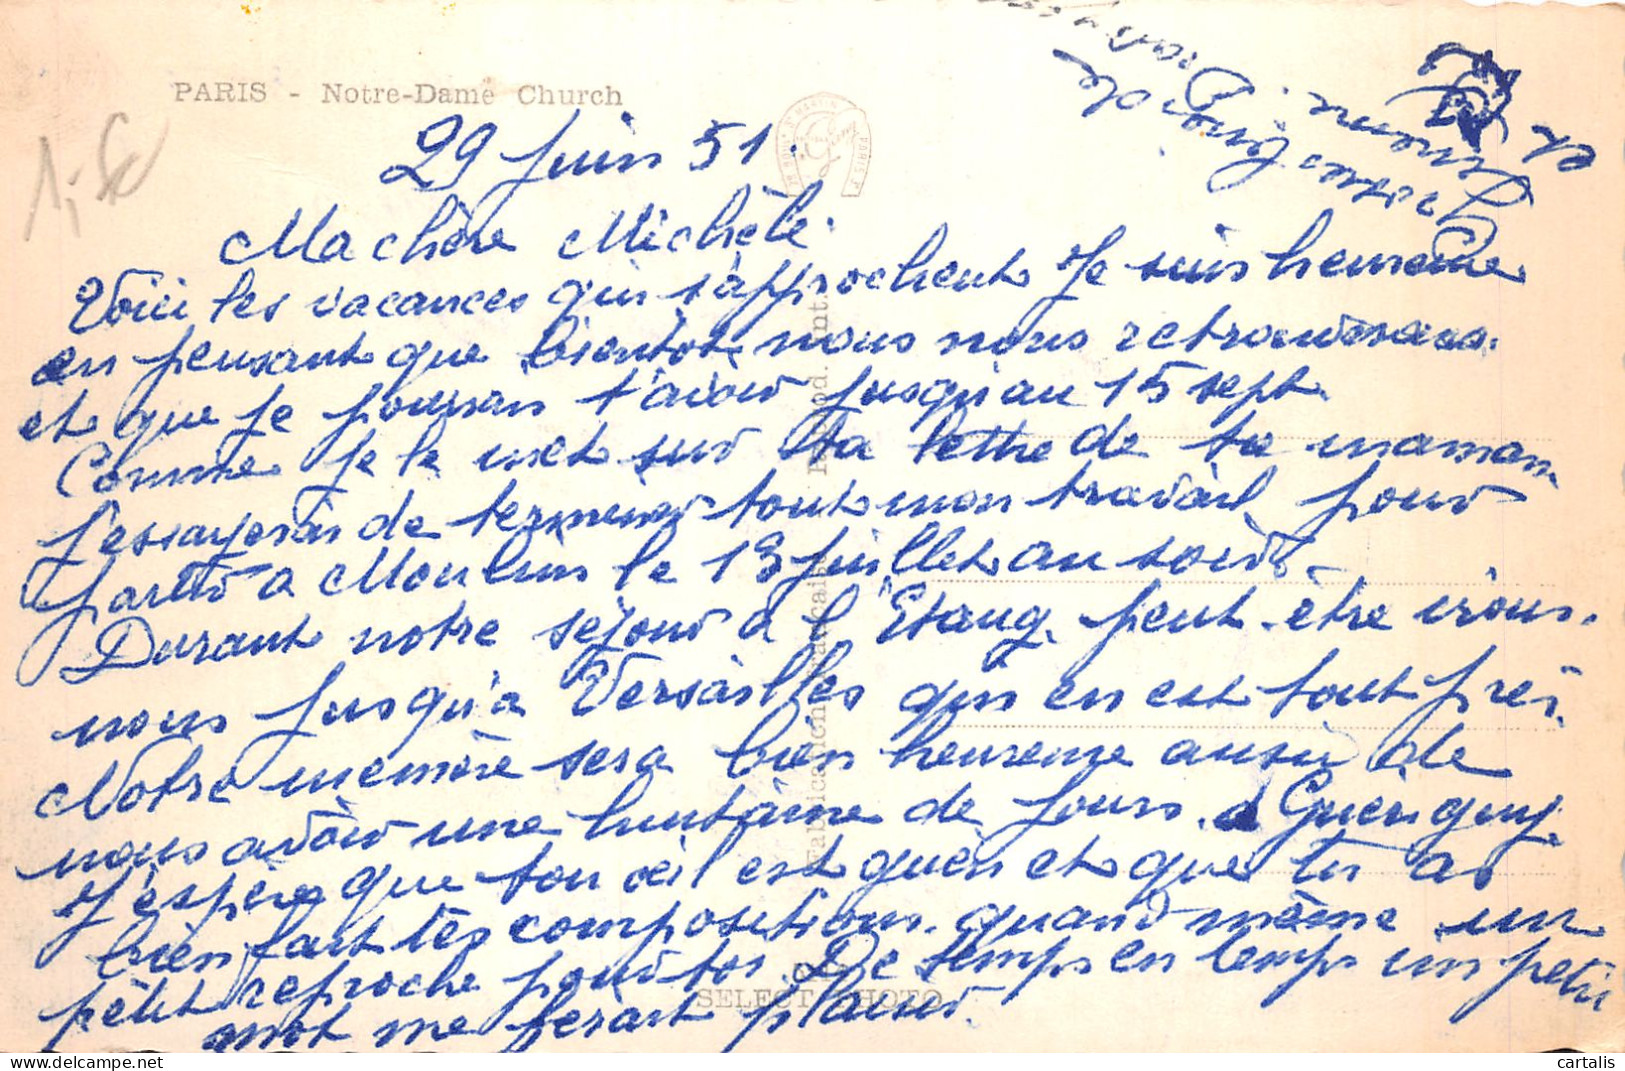 PARIS - Notre-Dame Church
1,50
29 juin 51.
Ma chère Michèle.
Voici les vacances qui s'approchent Je suis heureuse
en pensant que bientot nous nous retrouverons.
et que je pourrai t'avoir jusqu'au 15 sept.
Comme je le met sur la lettre de ta maman
j'essayerai de terminer tout mon travail pour
partir a Moulins le 13 juillet au soir.
Durant notre séjour à l'Etang peut-être irons-
nous jusqu'a Versailles qui en est tout près.
Notre mémère sera bien heureuse aussi de
nous avoir une huitaine de jours. a Guerigny.
J'espère que ton oeil est gueri et que tu as
bien fait tes compositions. quand même un
petit reproche pour toi. De temps en temps un petit
mot me ferait plaisir.
SELECT PHOTO
Fabrication Française
cartalis